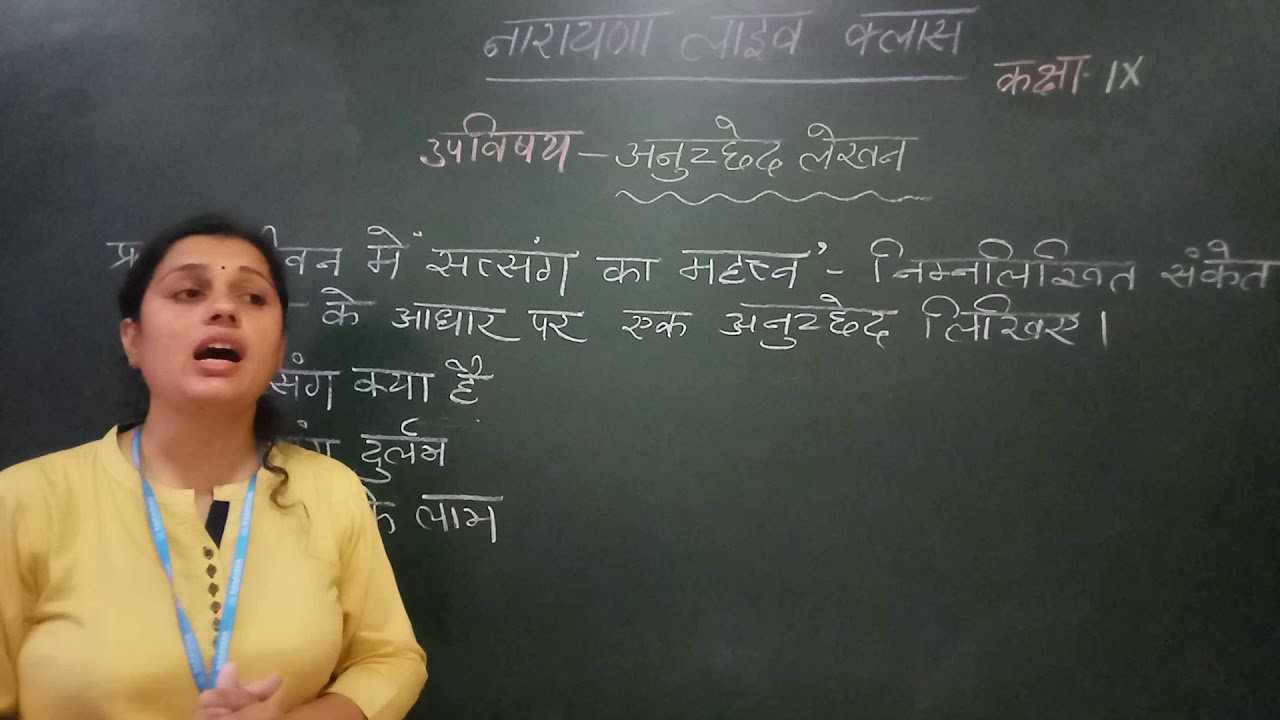 नारायणा लाइव क्लास
कक्षा- IX
उपविषय – अनुच्छेद लेखन
में 'सत्संग का महत्त्व' - निम्नलिखित संकेत
के आधार पर एक अनुच्छेद लिखिए।
संग क्या है
दुर्लभ
के लाभ